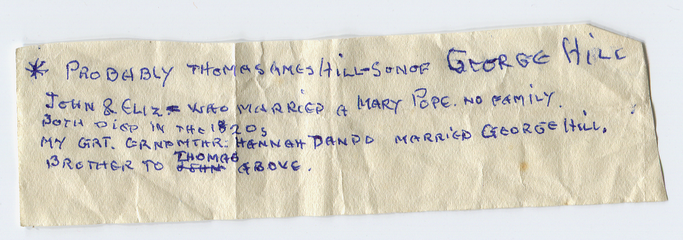 * PROBABLY THOMAS AMES HILL-SON OF GEORGE HILL
JOHN & ELIZ= WHO MARRIED A MARY POPE. NO FAMILY.
BOTH DIED IN THE 1820s
MY GRT. GRNDMTHR. HANNAH DANDO MARRIED GEORGE HILL.
BROTHER TO JOHN THOMAS ABOVE.